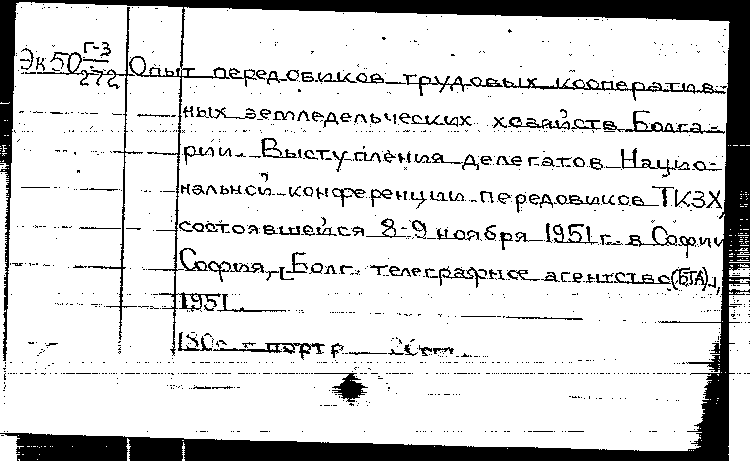 Эк50 Г-3/272 Опыт передовиков трудовых кооператив-
ных земледельческих хозяйств Болга-
рии. Выступления делегатов Нацио-
нальной конференции передовиков ТКЗХ,
состоявшейся 8-9 ноября 1951 г. в Софии
София, [Болг. телеграфное агентство (БТА)],
1951.
180с. с портр. 20 см.